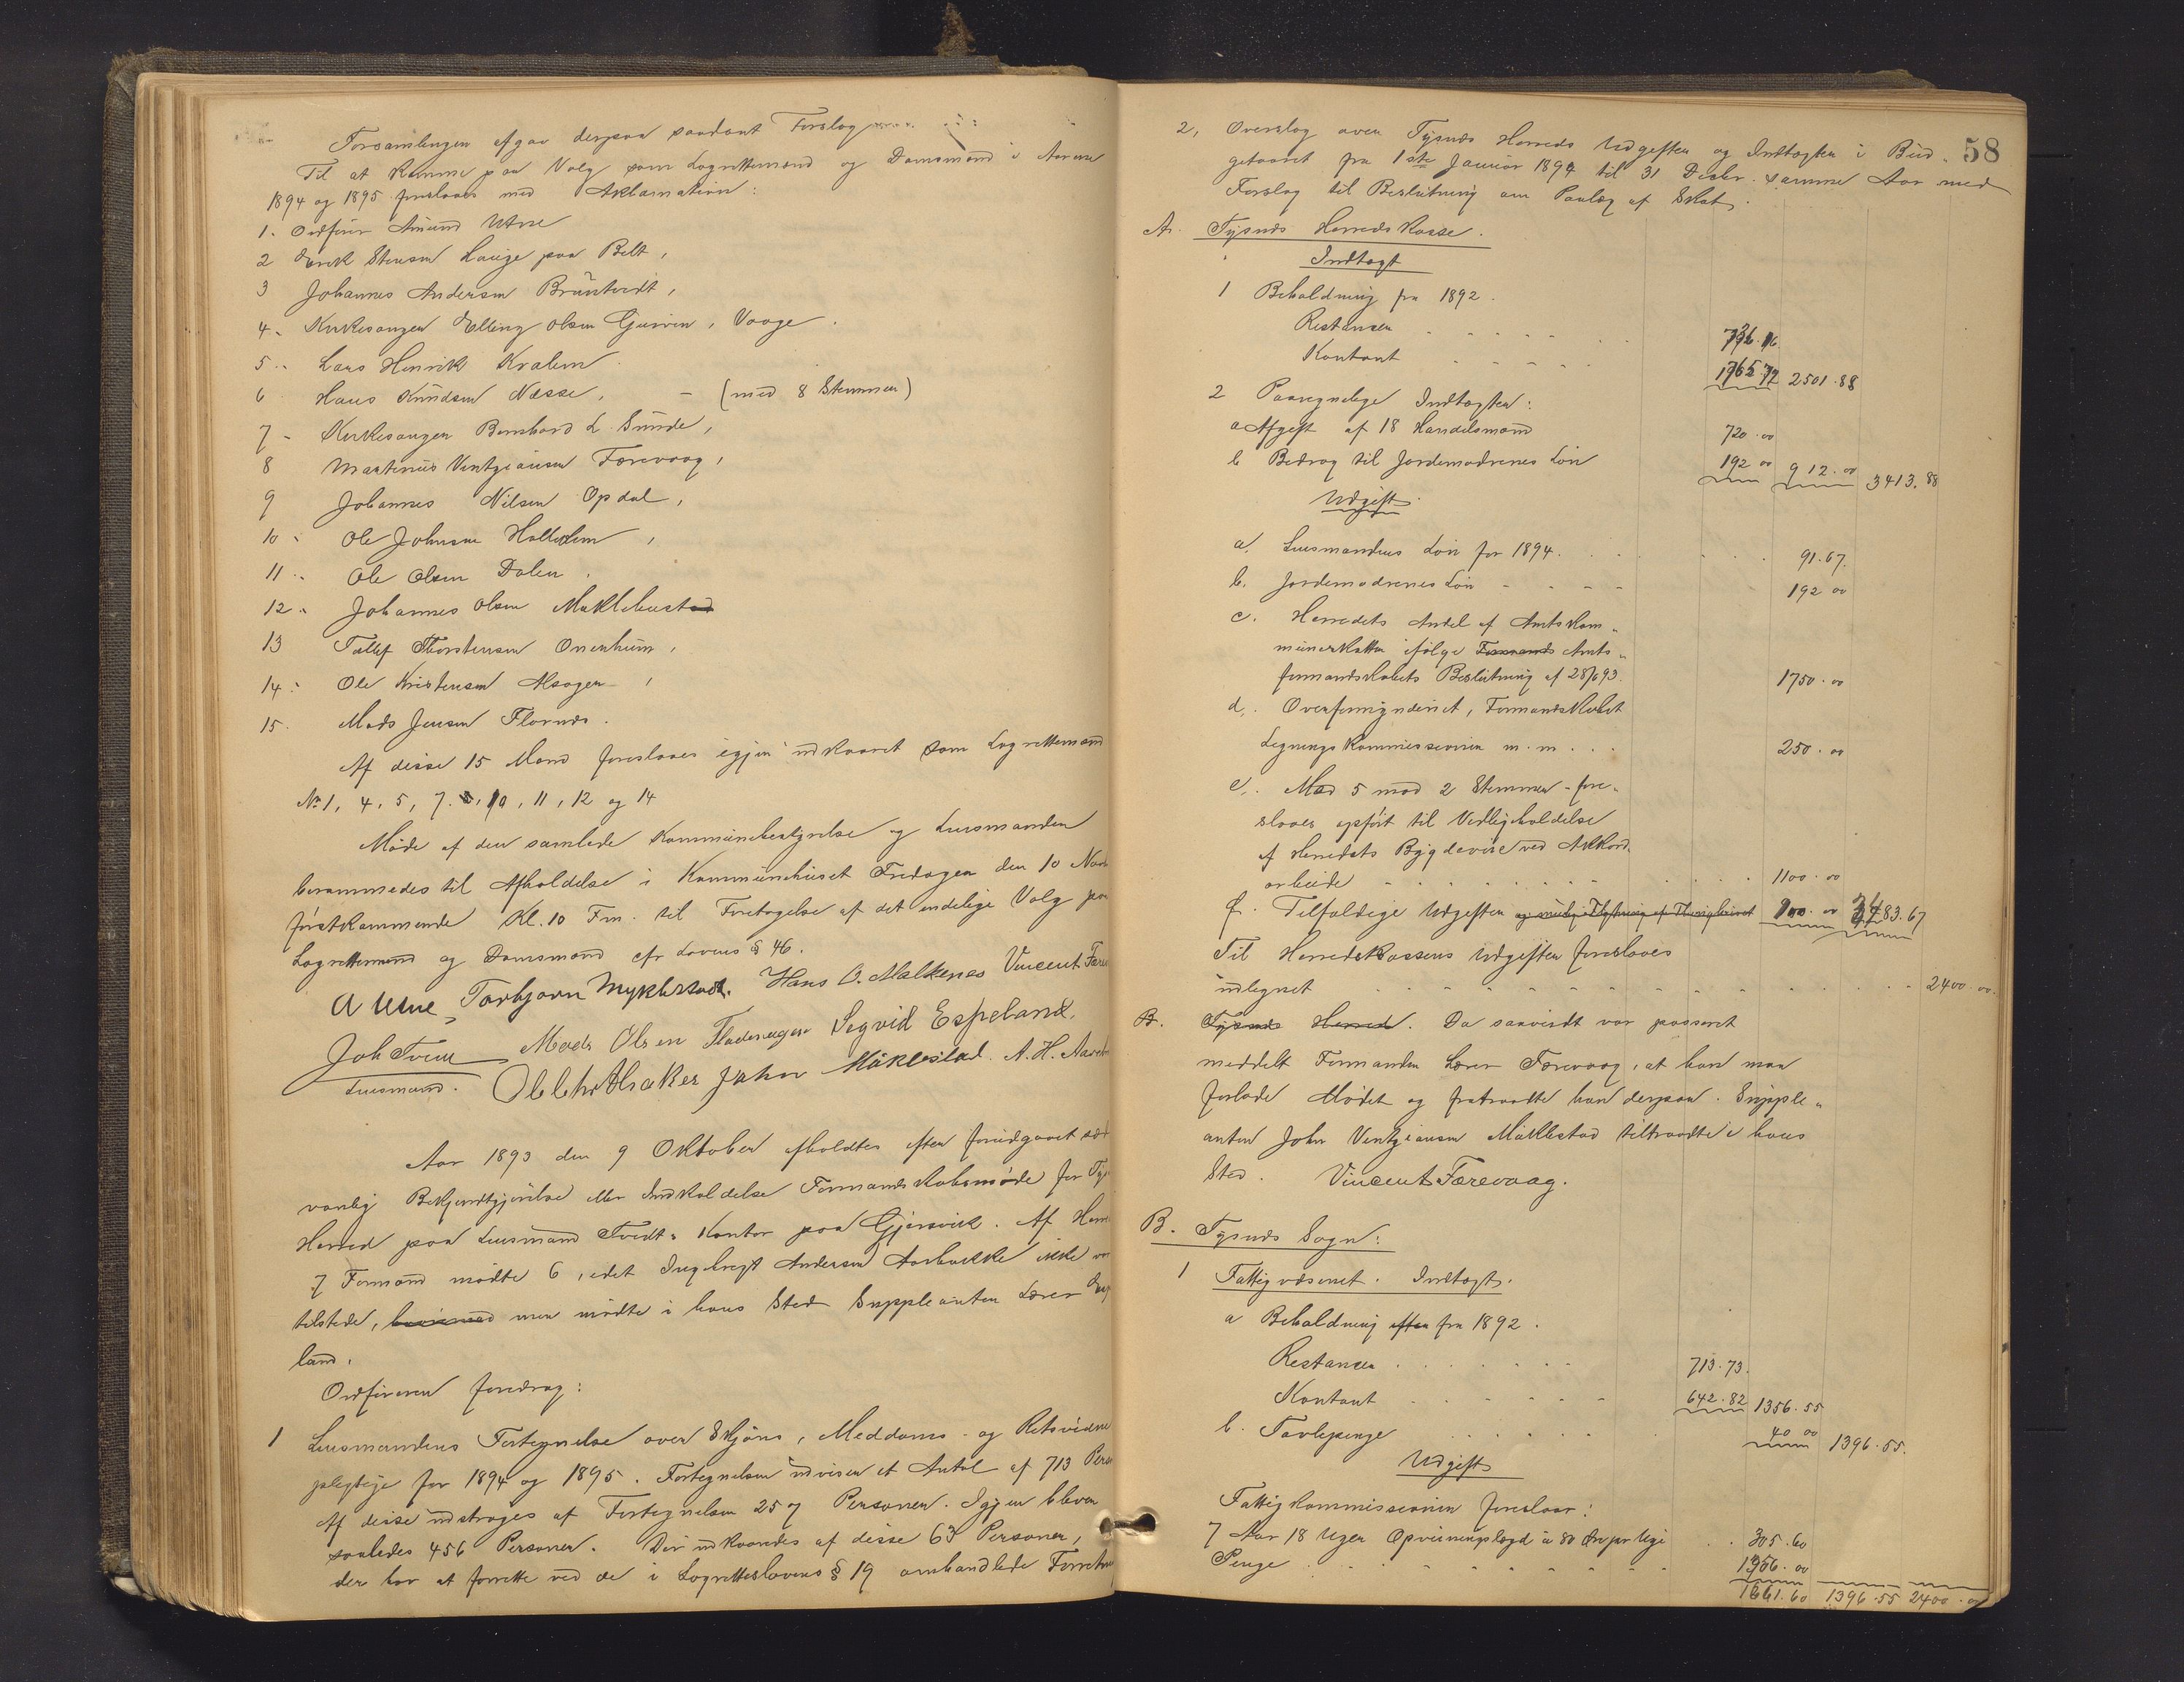 Forsamlingen afgav derpaa saadant Forslag
Til at komme paa Valg som Lagrettemænd og Domsmænd i Aarene
1894 og 1895 foreslaaes med Aklamation:
1. Ordfører Amund Utne
2 Erik Stensen Lauge paa Belt,
3 Johannes Andersen Brüntvedt,
4. Kirkesanger Elling Olsen Gjerven, Vaage.
5. Lars Henrik Kralem
6 Hans Knudsen Næsse, - (med 8 Stemmer)
7 - Kirkesanger Bernhard L. Sunde,
8 Martinus Ventziansen Færevaag,
9 Johannes Nilsen Opdal,
10. Ole Johnsen Holledlem,
11. Ole Olsen Dalen.
12. Johannes Olsen Møklebust
13 Tollef Thorstensen Onenheim,
14. Ole Kristensen Alsager,
15. Mads Jensen Flornes.
Af disse 15 Mænd foreslaaes igjen udkaaret som Lagrettemænd
No 1, 4, 5, 7, 10, 11, 12 og 14
Møde af den samlede Kommunebestyrelse og Lensmanden
berammedes til Afholdelse i Kommunehuset Fredagen den 10 Novb
førstkommende Kl. 10 Fm. til Foretagelse af det endelige Valg paa
Lagrettemænd og Domsmænd cfr Lovens § 46.
A Utne, Torbjørn Myklestad. Hans O. Malkenes Vincent Fære
Joh Tveit Mads Olsen Fladenager Sigvid Espeland.
Lensmand. Ole Chr Hraker John Møklestad. A. H. Aarebr
Aar 1893 den 9 Oktober afholdtes efter forudgaaet sæd
vanlig Bekjendtgjørelse eller Indkaldelse Formandskabsmøde for Tys
Herred paa Lensmand Tvedts Kontor paa Gjersvik. Af Herre
7 Formænd mødte 6, idet Ingebregt Andersen Aarbakke ikke var
tilstede, men mødte i hans Sted Suppleanten Lærer Esp
land.
Ordføreren foredrog:
1 Lensmandens Fortegnelse over Skjøns, Meddoms- og Retsvidne
pligtige for 1894 og 1895. Fortegnelsen udviser et Antal af 713 Pers
Af disse udstroges af Fortegnelsen 257 Personer. Igjen bleven
saaledes 456 Personer. Der udkaaredes af disse 63 Personer,
der har at forrette ved de i Lagretteslovens § 19 omhandlede Forretn
58
2, Overslag over Tysnes Herreds Udgifter og Indtægter i Bud-
getaaret fra 1ste Januar 1894 til 31 Decbr. samme Aar med
Forslag til Beslutning om Paalæg af Skat.
A. Tysnes Herredskasse.
Indtægt
1 Beholdning fra 1892.
Restanser 736.16
Kontant 1765.72 2501.88
2 Paaregnelige Indtægter:
a Afgift af 18 Handelsmænd 720.00
b Bidrag til Jordemødrenes Løn 192 00 912.00 3413.88
Udgift.
a. Lensmandens Løn for 1894. 91.67.
b. Jordemødrenes Løn 192 00
c. Herredets Andel af Amtskom-
muneskatten ifølge Formands Amts-
formandskabets Beslutning af 28/6 93. 1750.00
d. Overformynderiet, Formandskabet
Legningskommissionen m.m. 250.00
e. Med 5 mod 2 Stemmer fore-
slaaes opført til Vedligeholdelse
af Herredets Bygdeveie ved Akkord-
arbeide 1100.00
f. Tilfældige Udgifter 100.00 3483.67
Til Herredskassens Udgifter foreslaaes
udlignet 2400.00.
B. Tysnes Herred. Da saavidt var passeret
meddelt Formanden Lærer Færevaag, at han maa
forlade Mødet og fratraadte han derpaa. Supple-
anten John Ventziansen Møklestad tiltraadte i hans
Sted. Vincent Færevaag.
B. Tysnes Sogn:
1 Fattigvæsenet. Indtægt.
a Beholdning efter fra 1892.
Restanser 713.73.
Kontant 642.82 1356.55
b. Tavlepenge 40 00 1396.55.
Udgift
Fattigkommissionen foreslaar:
7 Aar 18 Uger Opvisningslægd à 80 Øre pr Uge 305.60
Penge 1356.00
1661.60 1396.55 2400.00